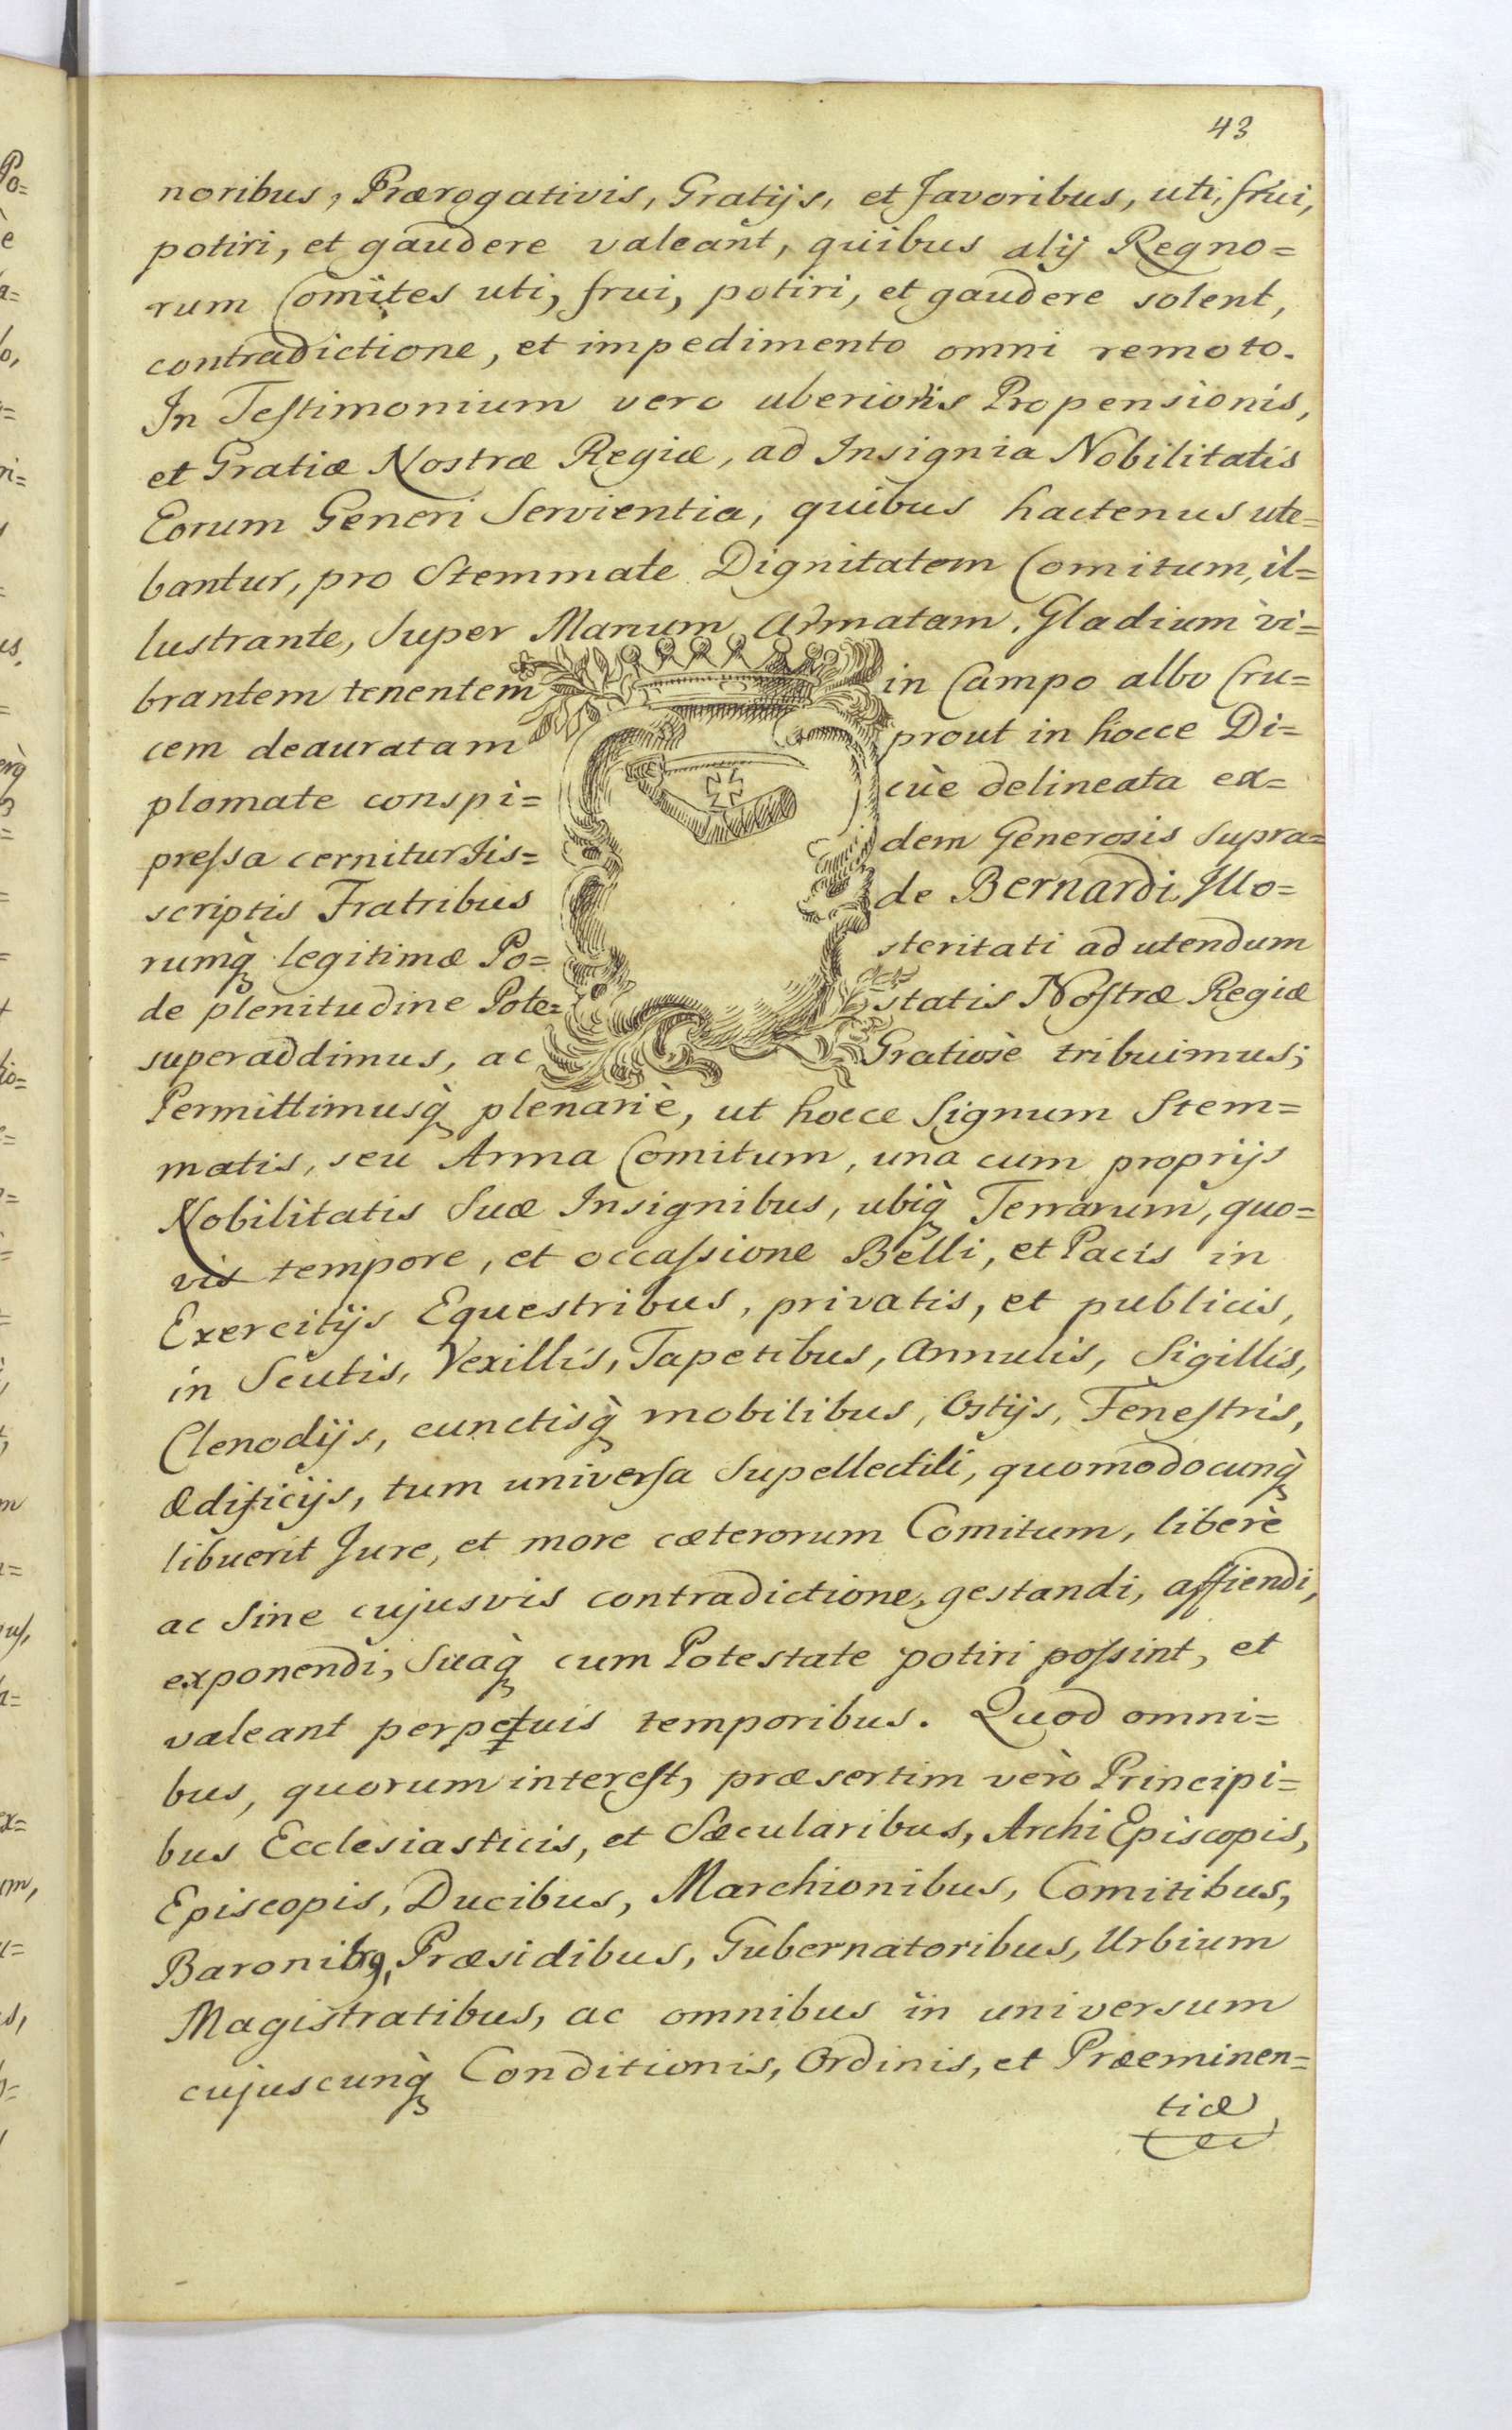 43
noribus, Prærogativis, Gratijs, et favoribus, uti, frui,
potiri, et gaudere valeant, quibus alij Regno=
rum Comites uti, frui, potiri, et gaudere solent,
contradictione, et impedimento omni remoto.
In Teſtimonium vero uberioris Propensionis,
et Gratiæ Nostræ Regiæ, ad Insignia Nobilitatis
Eorum Generi Servientia, quibus hactenus ute=
bantur, pro Stemmate Dignitatem Comitum, il=
lustrante, Super Manum Armatam, Gladium vi=
brantem tenentem in Campo albo Cru=
cem deauratam prout in hocce Di=
plomate conspi= cùe delineata ex=
preſsa cernitur Iis= dem Generosis Supra=
scriptis Fratribus de Bernardi, Illo=
rumq̀ legitimæ Po= steritati ad utendum
de plenitudine Pote= statis Noſtræ Regiæ
superaddimus, ac Gratiosè tribuimus;
Permittimusq̀ plenariè, ut hocce Signum Stem=
matis, seu Arma Comitum, una cum proprijs
Nobilitatis Suæ Insignibus, ubiq̀ Terrarum, quo=
vis tempore, et occaſsione Belli, et Pacis in
Exercitijs Equestribus, privatis, et publicis,
in Scutis, Vexillis, Tapetibus, Annulis, Sigillis,
Clenodijs, cunctisq̀ mobilibus, Ostijs, Feneſtris,
Ædificijs, tum universa Supellectili, quomodocunq̀
libuerit Jure, et more cæterorum Comitum, liberè
ac Sine cujusvis contradictione, gestandi, affiendi,
exponendi, Suaq̀ cum Potestate potiri poſsint, et
valeant perpetuis temporibus. Quod omni=
bus, quorum intereſt, præsertim verò Principi=
bus Ecclesiasticis, et Sæcularibus, Archi Episcopis,
Episcopis, Ducibus, Marchionibus, Comitibus,
Baronibꝯ, Præsidibus, Gubernatoribus, Urbium
Magistratibus, ac omnibus in universum
cujuscunq̀ Conditionis, Ordinis, et Præeminen=
tiæ